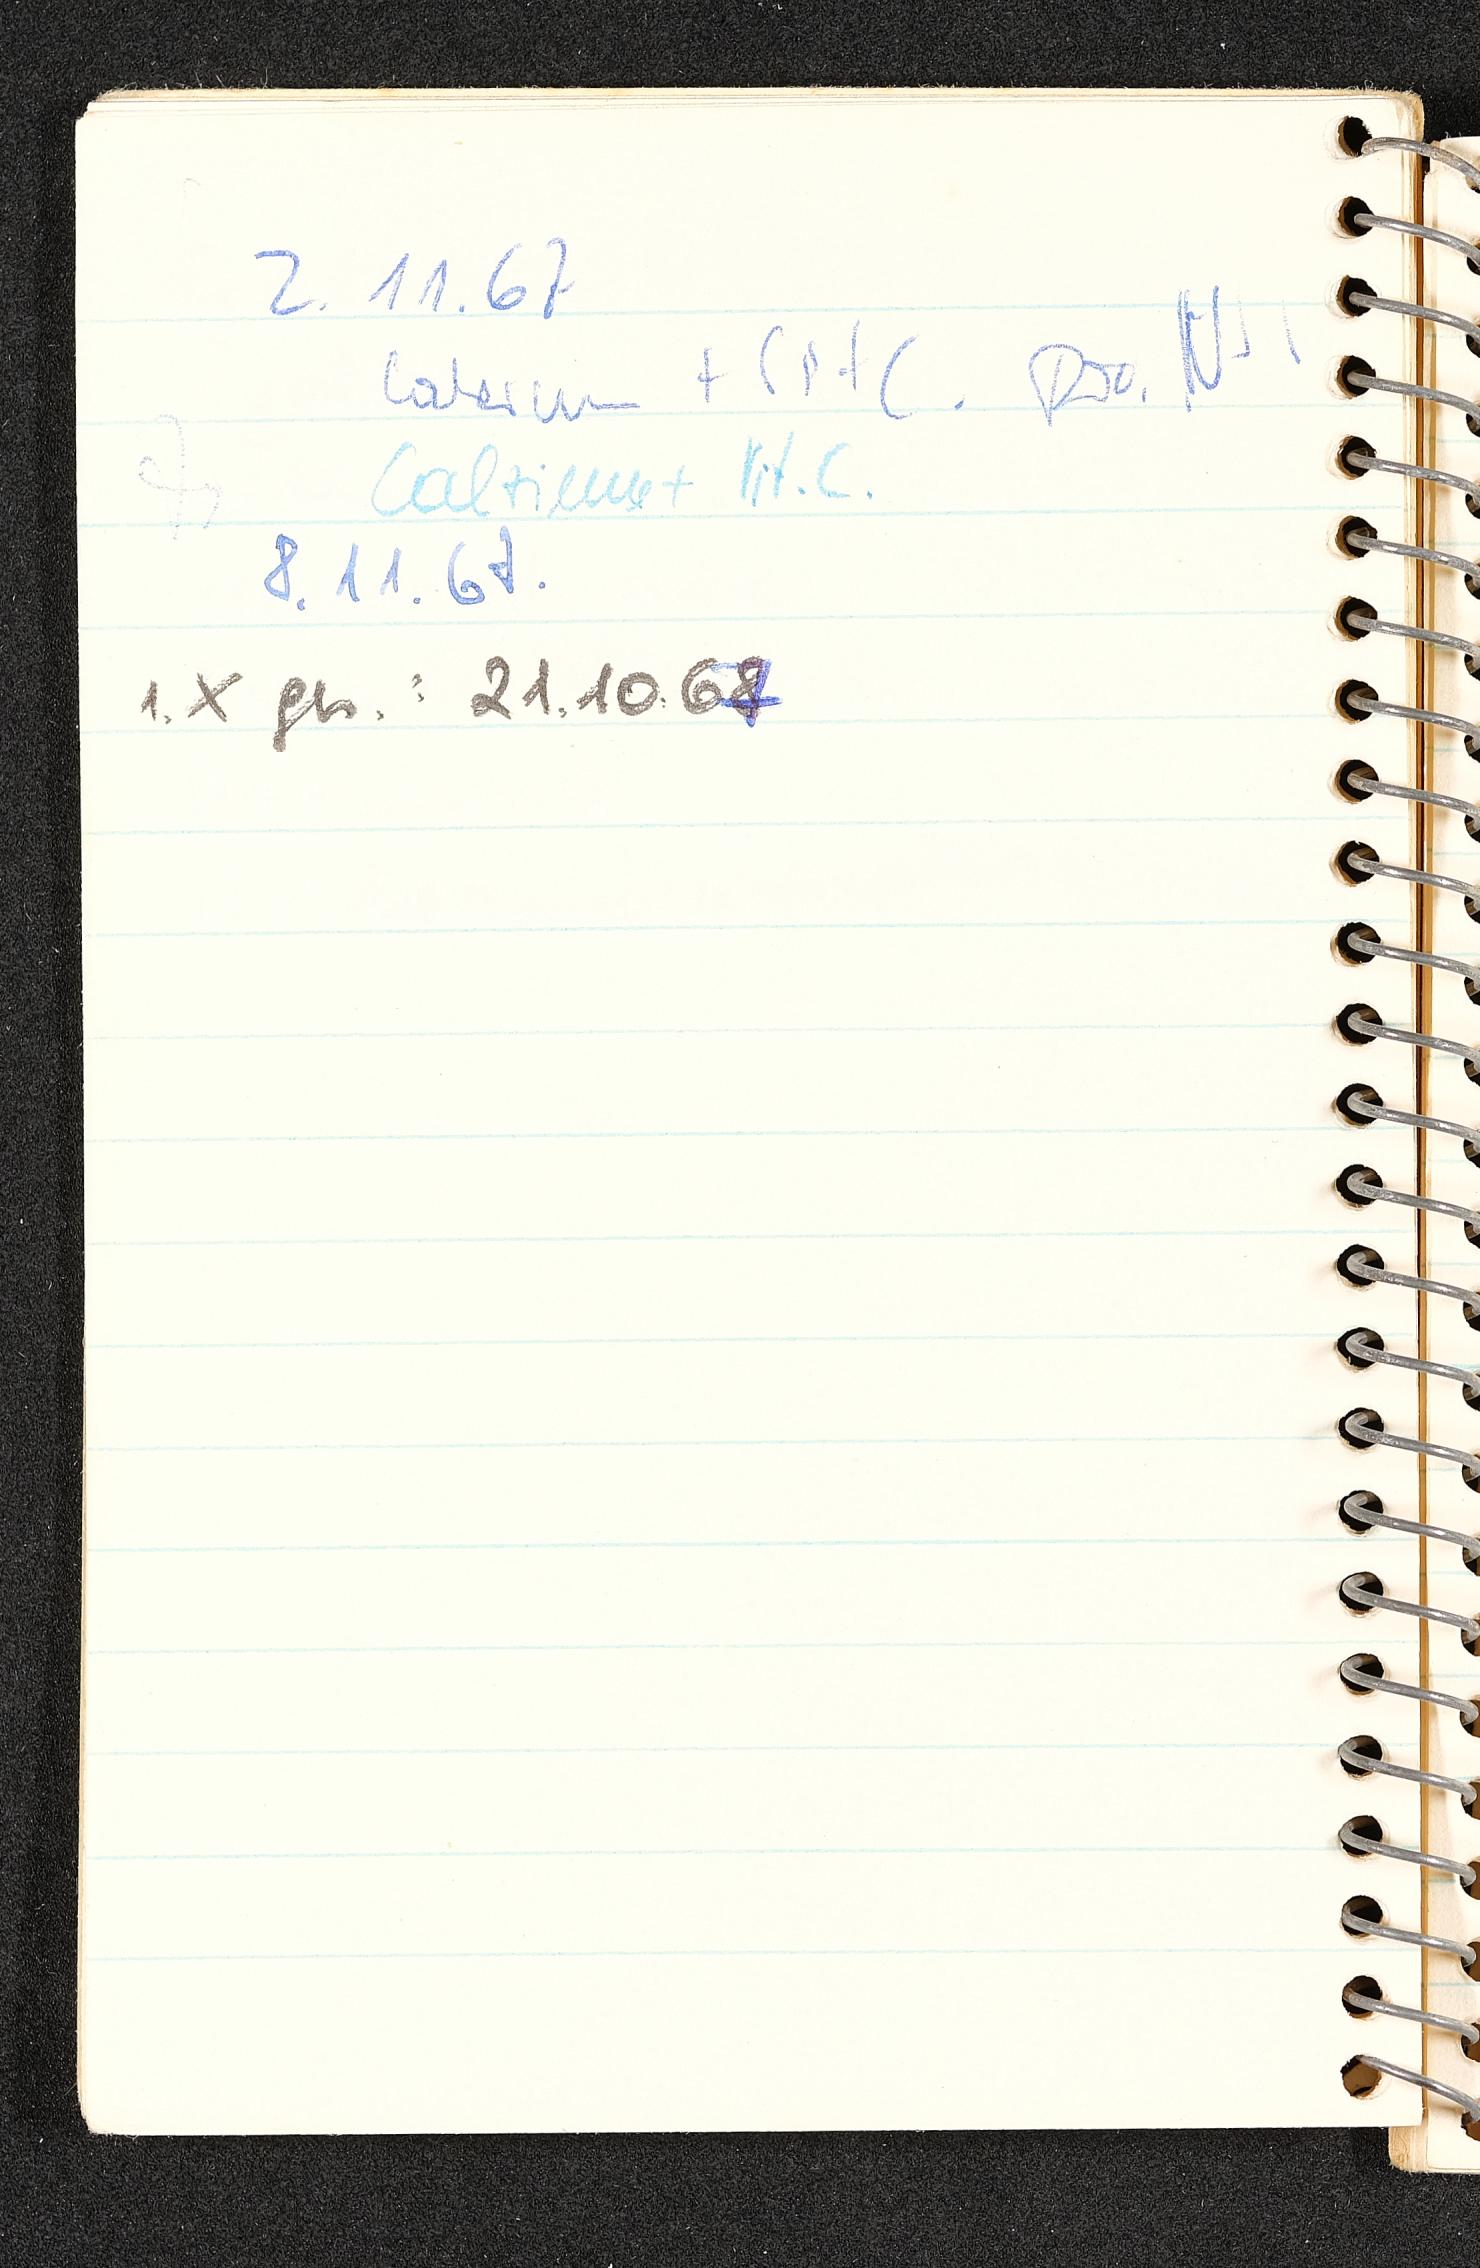 2. 11. 67
Calcium + C. pro.
Calzium + Vit. C.
8. 11. 67.
1. X gb. : 21.10.67